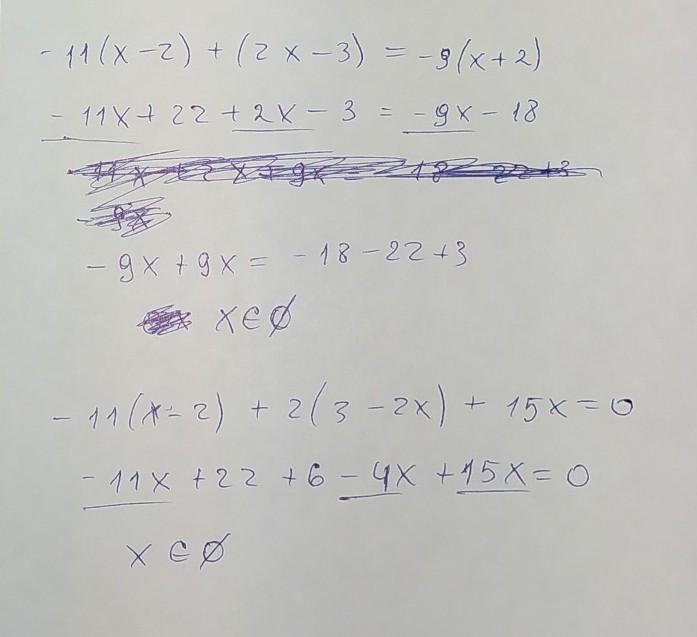 -11(x-2) + (2x-3) = -9(x+2)
-11x + 22 + 2x - 3 = -9x - 18
-9x + 9x = -18 - 22 + 3
x ∈ ∅
-11(x-2) + 2(3-2x) + 15x = 0
-11x + 22 + 6 - 4x + 15x = 0
x ∈ ∅